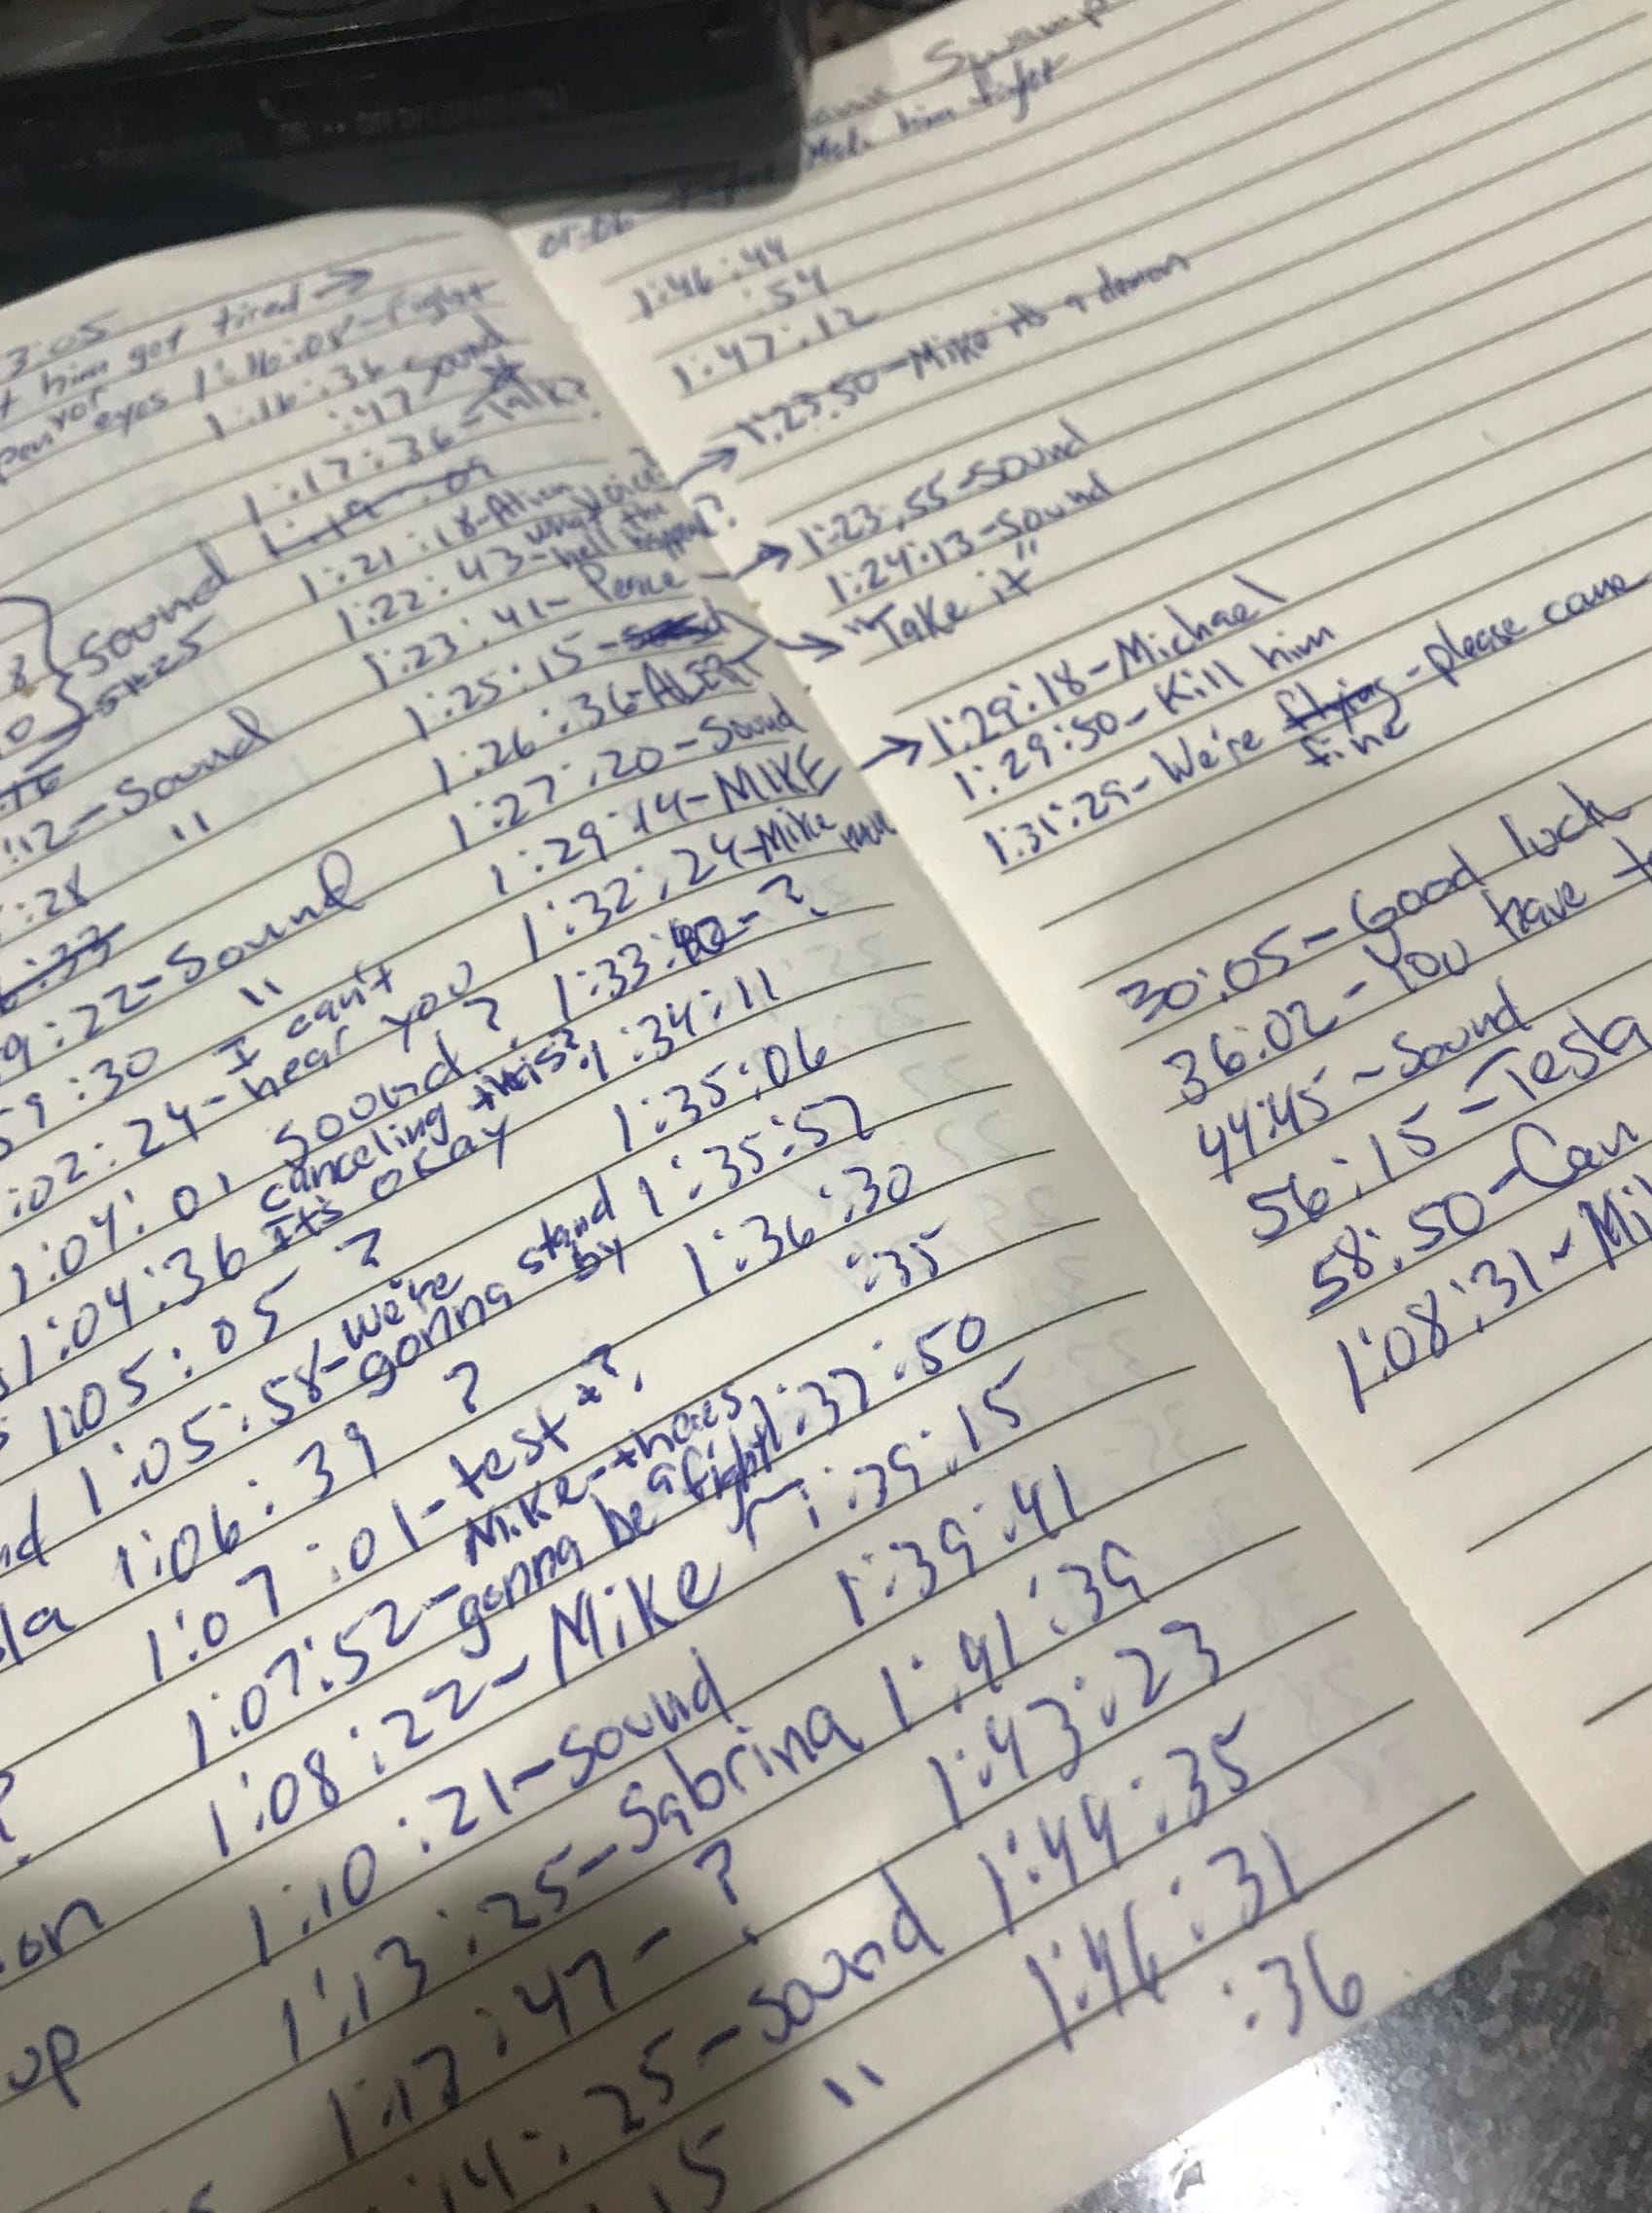 3:05
him got tired →
eyes 1:16:08-fight
1:16:36 sound
:47
1:17:36-talk?
Sound
1:21:18-Alien voice?
1:22:43-what the hell happened?
1:23:41-Peace
1:25:15-
:12-Sound
1:26:36-ALERT
:28 "
1:27:20-Sound
1:29:14-MIKE
9:22-Sound
1:32:24-Mike
59:30 "
1:33:42-?
:02:24-I can't hear you
1:34:11
1:04:01 Sound?
1:35:06
1:04:36 canceling this? It's okay
1:35:57
1:05:05 ?
1:36:30
1:05:58-We're gonna stand by
:35
1:06:39 ?
1:37:50
1:07:01-test+?
1:39:15
1:07:52-Mike-theres gonna be a fight
1:39:41
1:08:22-Mike
1:41:39
1:10:21-Sound
1:43:23
on
1:13:25-Sabrina
1:44:35
up
1:17:47-?
1:46:31
:14:25-Sound
:36
15 "
Swamp
him fight
01:06
1:46:44
:54
1:47:12
→ 1:23:50-Mike its a demon
→ 1:23:55-Sound
1:24:13-Sound
→ "Take it"
→ 1:29:18-Michael
1:29:50-Kill him
1:31:29-We're flying-please come
fine
30:05-Good luck
36:02-You have
44:45-Sound
56:15-Tesla
58:50-Can
1:08:31-Mi